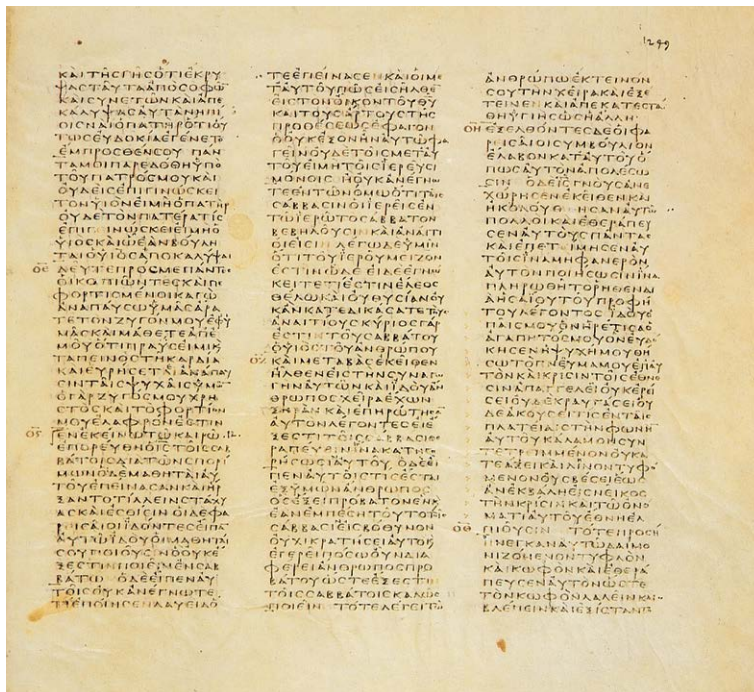 1249
ΚΑΙΤΗΣΓΗΣΟΤΙΕΚΡΥ
ΨΑΣΤΑΥΤΑΑΠΟΣΟΦΩ
ΚΑΙΣΥΝΕΤΩΝΚΑΙΑΠΕ
ΚΑΛΥΨΑΣΑΥΤΑΝΗΠΙ
ΟΙΣΝΑΙΟΠΑΤΗΡΟΤΙΟΥ
ΤΩΣΕΥΔΟΚΙΑΕΓΕΝΕΤΟ
ΕΜΠΡΟΣΘΕΝΣΟΥ ΠΑΝ
ΤΑΜΟΙΠΑΡΕΔΟΘΗΥΠΟ
ΤΟΥΠΑΤΡΟΣΜΟΥΚΑΙ
ΟΥΔΕΙΣΕΠΙΓΙΝΩΣΚΕΙ
ΤΟΝΥΙΟΝΕΙΜΗΟΠΑΤΗΡ
ΟΥΔΕΤΟΝΠΑΤΕΡΑΤΙΣ
ΕΠΙΓΙΝΩΣΚΕΙΕΙΜΗΟ
ΥΙΟΣΚΑΙΩΕΑΝΒΟΥΛΗ
ΤΑΙΟΥΙΟΣΑΠΟΚΑΛΥΨΑΙ
ΔΕΥΤΕΠΡΟΣΜΕΠΑΝΤΕΣ
ΟΙΚΟΠΙΩΝΤΕΣΚΑΙΠΕ
ΦΟΡΤΙΣΜΕΝΟΙΚΑΓΩ
ΑΝΑΠΑΥΣΩΥΜΑΣΑΡΑ
ΤΕΤΟΝΖΥΓΟΝΜΟΥΕΦΥ
ΜΑΣΚΑΙΜΑΘΕΤΕΑΠΕ
ΜΟΥΟΤΙΠΡΑΥΣΕΙΜΙΚΑΙ
ΤΑΠΕΙΝΟΣΤΗΚΑΡΔΙΑ
ΚΑΙΕΥΡΗΣΕΤΑΙΑΝΑΠΑΥ
ΣΙΝΤΑΙΣΨΥΧΑΙΣΥΜΩ
ΟΓΑΡΖΥΓΟΣΜΟΥΧΡΗ
ΣΤΟΣΚΑΙΤΟΦΟΡΤΙΟΝ
ΜΟΥΕΛΑΦΡΟΝΕΣΤΙΝ
ΕΝΕΚΕΙΝΩΤΩΚΑΙΡΩ 12.
ΕΠΟΡΕΥΘΗΟΙΣΤΟΙΣΣΑΒ
ΒΑΤΟΙΣΔΙΑΤΩΝΣΠΟΡΙ
ΜΩΝΟΙΔΕΜΑΘΗΤΑΙΑΥ
ΤΟΥΕΠΕΙΝΑΣΑΝΚΑΙΗΡ
ΞΑΝΤΟΤΙΛΛΕΙΝΣΤΑΧΥ
ΑΣΚΑΙΕΣΘΙΕΙΝΟΙΔΕΦΑ
ΡΕΙΣΑΙΟΙΙΔΟΝΤΕΣΕΙΠΑ
ΑΥΤΩΙΔΟΥΟΙΜΑΘΗΤΑΙ
ΣΟΥΠΟΙΟΥΣΙΝΟΟΥΚΕ
ΞΕΣΤΙΝΠΟΙΕΙΝΕΝΣΑΒ
ΒΑΤΩ ΟΔΕΕΙΠΕΝΑΥ
ΤΟΙΣΟΥΚΑΝΕΓΝΩΤΕ
ΤΙΕΠΟΙΗΣΕΝΔΑΥΕΙΔΟ
ΤΕΕΠΕΙΝΑΣΕΝΚΑΙΟΙΜΕ
ΤΑΥΤΟΥΠΩΣΕΙΣΗΛΘΕ
ΕΙΣΤΟΝΟΙΚΟΝΤΟΥΘΥ
ΚΑΙΤΟΥΣΑΡΤΟΥΣΤΗΣ
ΠΡΟΘΕΣΕΩΣΕΦΑΓΟΝ
ΟΟΥΚΕΞΟΝΗΝΑΥΤΩΦΑ
ΓΕΙΝΟΥΔΕΤΟΙΣΜΕΤΑΥ
ΤΟΥΕΙΜΗΤΟΙΣΙΕΡΕΥΣΙ
ΜΟΝΟΙΣ ΗΟΥΚΑΝΕΓΝΩ
ΤΕΕΝΤΩΝΟΜΩΟΤΙΤΟΙΣ
ΣΑΒΒΑΣΙΝΟΙΙΕΡΕΙΣΕΝ
ΤΩΙΕΡΩΤΟΣΑΒΒΑΤΟΝ
ΒΕΒΗΛΟΥΣΙΝΚΑΙΑΝΑΙΤΙ
ΟΙΕΙΣΙΝ ΛΕΓΩΔΕΥΜΙΝ
ΟΤΙΤΟΥΙΕΡΟΥΜΕΙΖΟΝ
ΕΣΤΙΝΩΔΕ ΕΙΔΕΕΓΝΩ
ΚΕΙΤΕΤΙΕΣΤΙΝΕΛΕΟΣ
ΘΕΛΩΚΑΙΟΥΘΥΣΙΑΝΟΥ
ΚΑΝΚΑΤΕΔΙΚΑΣΑΤΕΤΟΥΣ
ΑΝΑΙΤΙΟΥΣΚΥΡΙΟΣΓΑΡ
ΕΣΤΙΝΤΟΥΣΑΒΒΑΤΟΥ
ΟΥΙΟΣΤΟΥΑΝΘΡΩΠΟΥ
ΚΑΙΜΕΤΑΒΑΣΕΚΕΙΘΕΝ
ΗΛΘΕΝΕΙΣΤΗΝΣΥΝΑΓΩ
ΓΗΝΑΥΤΩΝΚΑΙΙΔΟΥΑΝ
ΘΡΩΠΟΣΧΕΙΡΑΕΧΩΝ
ΞΗΡΑΝ ΚΑΙΕΠΗΡΩΤΗΣΑ
ΑΥΤΟΝΛΕΓΟΝΤΕΣΕΙΕ
ΞΕΣΤΙΤΟΙΣΣΑΒΒΑΣΙΘΕ
ΡΑΠΕΥΕΙΝΙΝΑΚΑΤΗΓΟ
ΡΗΣΩΣΙΑΥΤΟΥ ΟΔΕΕΙ
ΠΕΝΑΥΤΟΙΣΤΙΣΕΣΤΑΙ
ΕΞΥΜΩΝΑΝΘΡΩΠΟΣ
ΟΣΕΞΕΙΠΡΟΒΑΤΟΝΕΝΚΑΙ
ΕΑΝΕΜΠΕΣΗΤΟΥΤΟΤΟΙΣ
ΣΑΒΒΑΣΙΕΙΣΒΟΘΥΝΟΝ
ΟΥΧΙΚΡΑΤΗΣΕΙΑΥΤΟΚΑΙ
ΕΓΕΡΕΙΠΟΣΩΟΥΝΔΙΑ
ΦΕΡΕΙΑΝΘΡΩΠΟΣΠΡΟ
ΒΑΤΟΥΩΣΤΕΕΞΕΣΤΙ
ΤΟΙΣΣΑΒΒΑΤΟΙΣΚΑΛΩΣ
ΠΟΙΕΙΝ ΤΟΤΕΛΕΓΕΙΤΩ
ΑΝΘΡΩΠΩΕΚΤΕΙΝΟΝ
ΣΟΥΤΗΝΧΕΙΡΑΚΑΙΕΞΕ
ΤΕΙΝΕΝΚΑΙΑΠΕΚΑΤΕΣΤΑ
ΘΗΥΓΙΗΣΩΣΗΑΛΛΗ
ΕΞΕΛΘΟΝΤΕΣΔΕΟΙΦΑ
ΡΕΙΣΑΙΟΙΣΥΜΒΟΥΛΙΟΝ
ΕΛΑΒΟΝΚΑΤΑΥΤΟΥΟ
ΠΩΣΑΥΤΟΝΑΠΟΛΕΣΩ
ΣΙΝ ΟΔΕΙΣΓΝΟΥΣΑΝΕ
ΧΩΡΗΣΕΝΕΚΕΙΘΕΝΚΑΙ
ΗΚΟΛΟΥΘΗΣΑΝΑΥΤΩ
ΠΟΛΛΟΙΚΑΙΕΘΕΡΑΠΕΥ
ΣΕΝΑΥΤΟΥΣΠΑΝΤΑΣ
ΚΑΙΕΠΕΤΙΜΗΣΕΝΑΥ
ΤΟΙΣΙΝΑΜΗΦΑΝΕΡΟΝ
ΑΥΤΟΝΠΟΙΗΣΩΣΙΝΙΝΑ
ΠΛΗΡΩΘΗΤΟΡΗΘΕΝΔΙΑ
ΗΣΑΙΟΥΤΟΥΠΡΟΦΗ
ΤΟΥΛΕΓΟΝΤΟΣ ΙΔΟΥΟ
ΠΑΙΣΜΟΥΟΝΗΡΕΤΙΣΑΟ
ΑΓΑΠΗΤΟΣΜΟΥΟΝΕΥΔΟ
ΚΗΣΕΝΗΨΥΧΗΜΟΥΘΗ
ΣΩΤΟΠΝΕΥΜΑΜΟΥΕΠΑΥ
ΤΟΝΚΑΙΚΡΙΣΙΝΤΟΙΣΕΘΝΕ
ΣΙΝΑΠΑΓΓΕΛΕΙΟΥΚΕΡΙ
ΣΕΙΟΥΔΕΚΡΑΥΓΑΣΕΙΟΥ
ΔΕΑΚΟΥΣΕΙΤΙΣΕΝΤΑΙΣ
ΠΛΑΤΕΙΑΙΣΤΗΝΦΩΝΗ
ΑΥΤΟΥΚΑΛΑΜΟΝΣΥΝ
ΤΕΤΡΙΜΜΕΝΟΝΟΥΚΑ
ΤΕΑΞΕΙΚΑΙΛΙΝΟΝΤΥΦΟ
ΜΕΝΟΝΟΥΣΒΕΣΕΙΕΩΣ
ΑΝΕΚΒΑΛΗΕΙΣΝΕΙΚΟΣ
ΤΗΝΚΡΙΣΙΝΚΑΙΤΩΟΝΟ
ΜΑΤΙΑΥΤΟΥΕΘΝΗΕΛ
ΠΙΟΥΣΙΝ ΤΟΤΕΠΡΟΣΗ
ΝΕΓΚΑΝΑΥΤΩΔΑΙΜΟ
ΝΙΖΟΜΕΝΟΝΤΥΦΛΟΝ
ΚΑΙΚΩΦΟΝΚΑΙΕΘΕΡΑ
ΠΕΥΣΕΝΑΥΤΟΝΩΣΤΕ
ΤΟΝΚΩΦΟΝΛΑΛΕΙΝΚΑΙ
ΒΛΕΠΕΙΝΚΑΙΕΞΙΣΤΑΝΤΟ